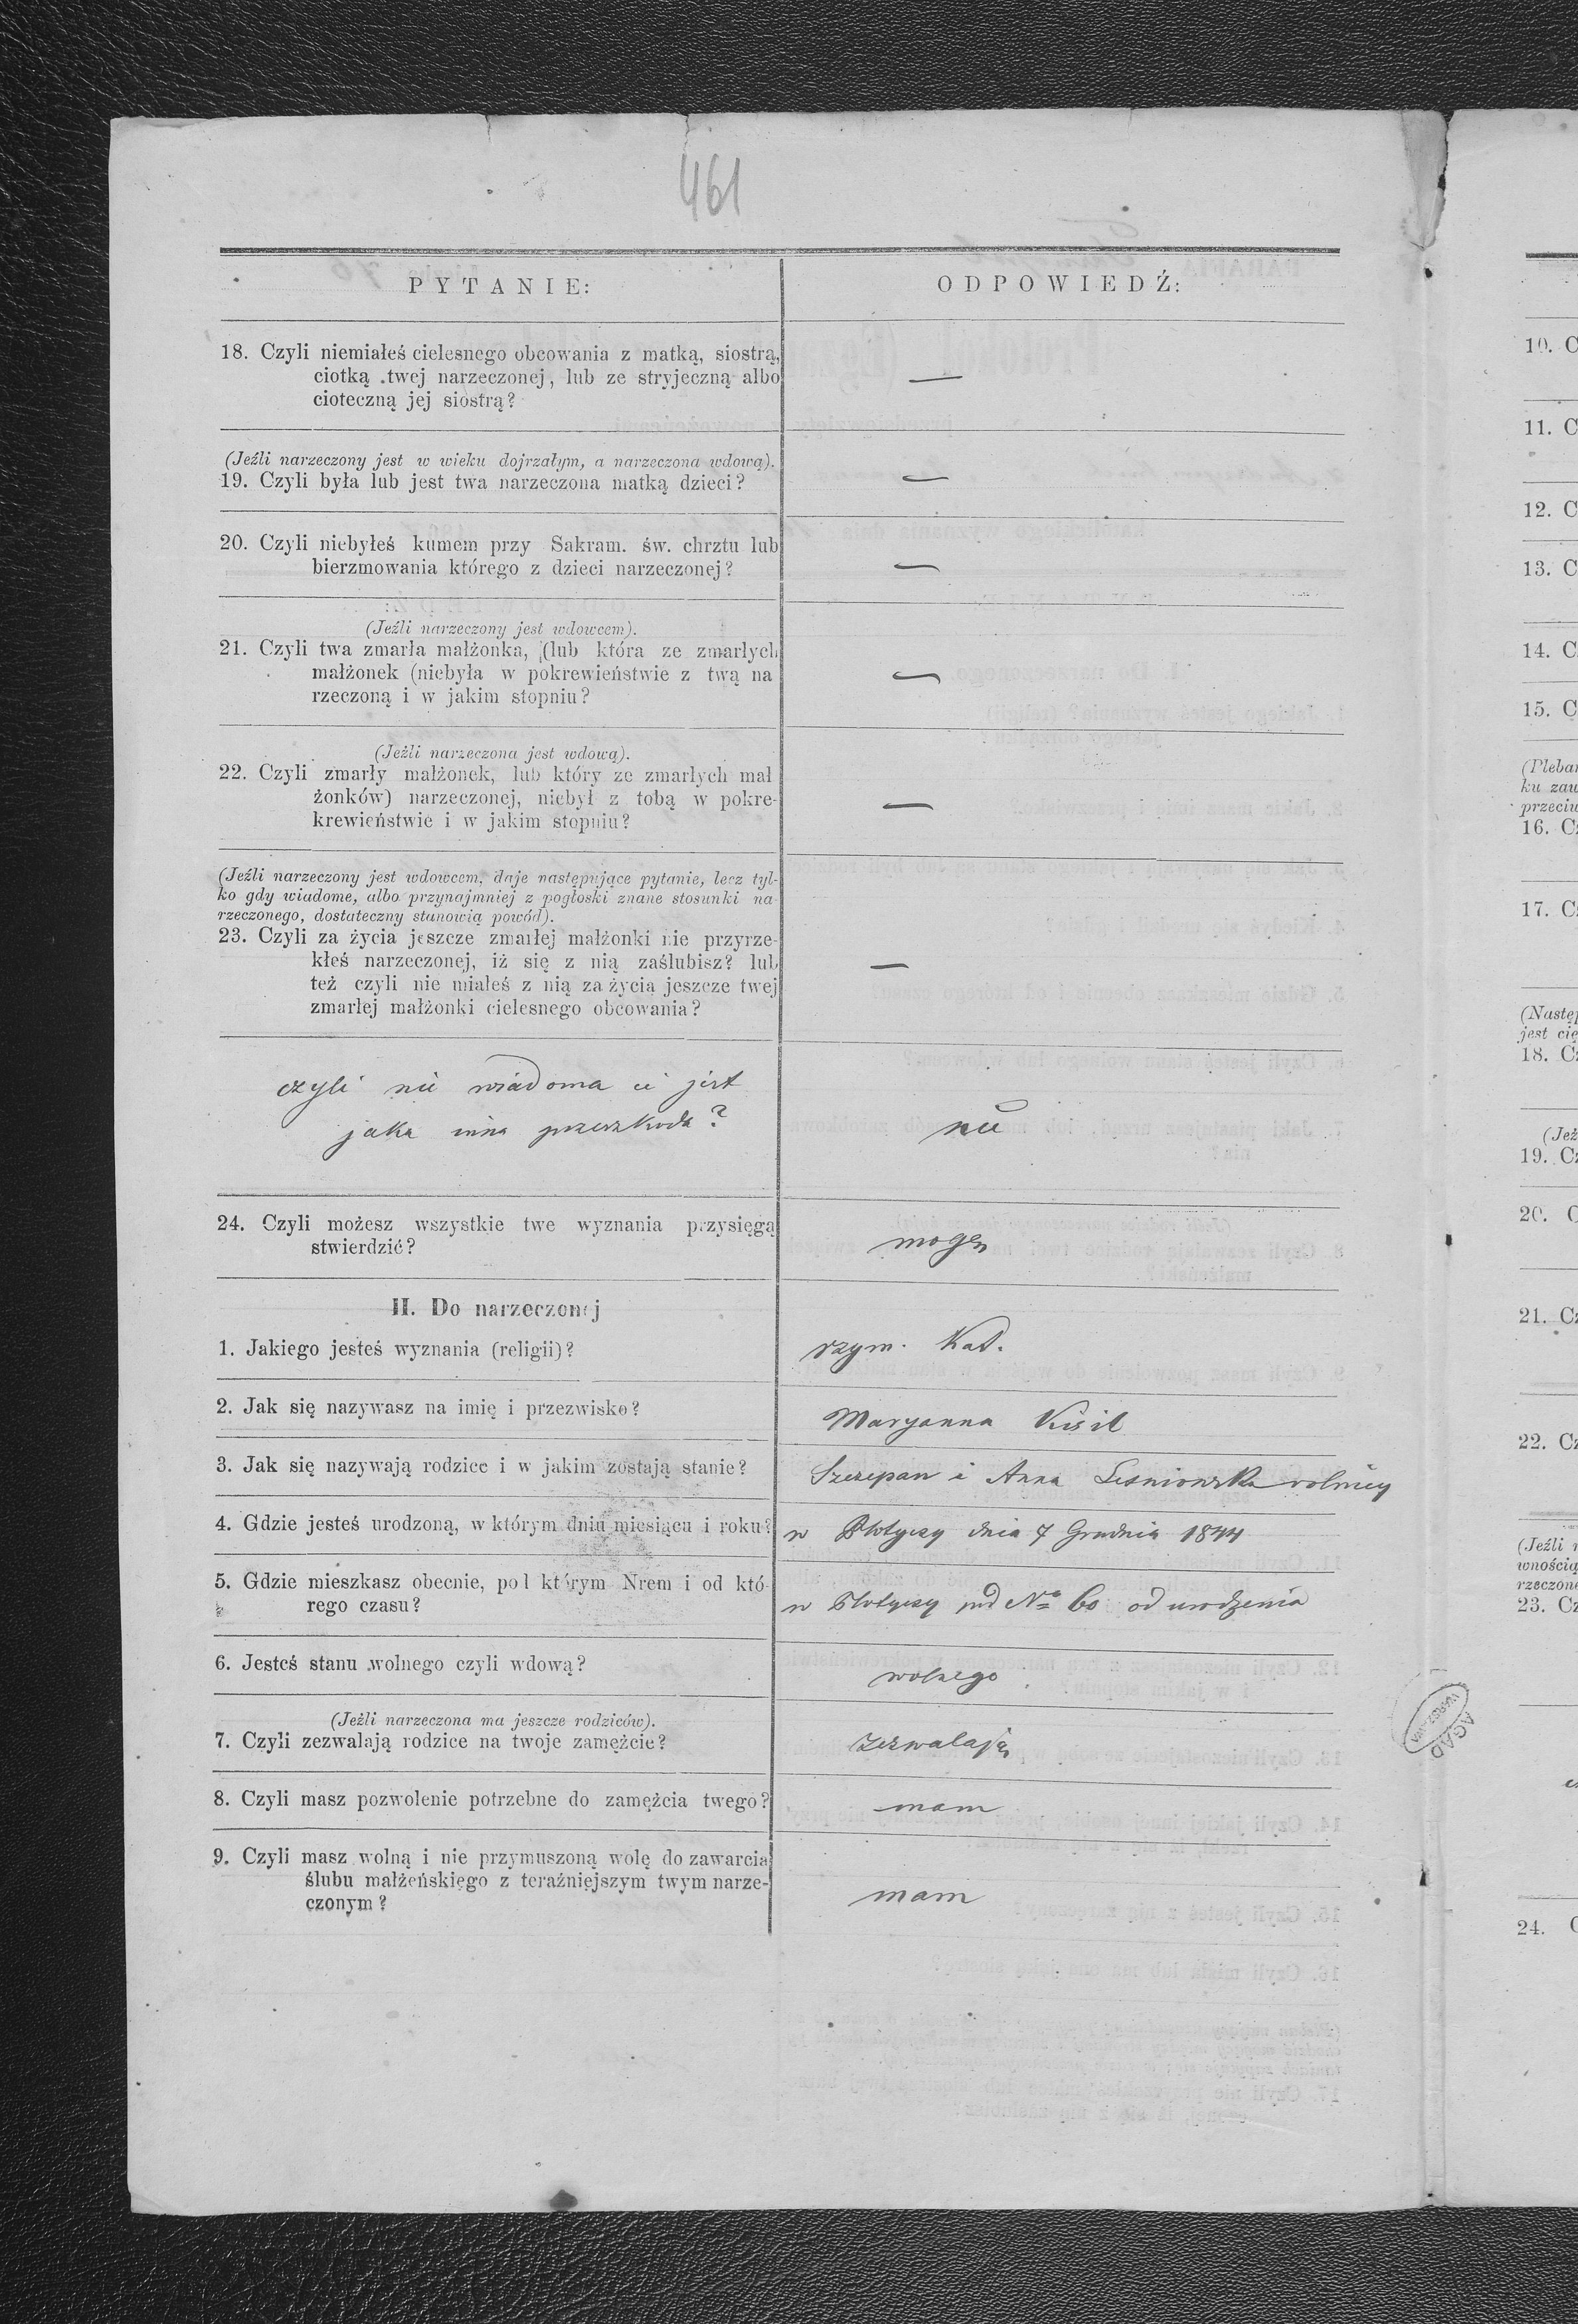 461
PYTANIE:
ODPOWIEDŹ:
18. Czyli niemiałeś cielesnego obcowania z matką, siostrą,
ciotką twej narzeczonej, lub ze stryjeczną albo
cioteczną jej siostrą?
—
(Jeźli narzeczony jest w wieku dojrzałym, a narzeczona wdową).
19. Czyli była lub jest twa narzeczona matką dzieci?
—
20. Czyli niebyłeś kumem przy Sakram. św. chrztu lub
bierzmowania którego z dzieci narzeczonej?
—
(Jeźli narzeczony jest wdowcem).
21. Czyli twa zmarła małżonka, (lub która ze zmarłych
małżonek (niebyła w pokrewieństwie z twą na
rzeczoną i w jakim stopniu?
—
(Jeźli narzeczona jest wdową).
22. Czyli zmarły małżonek, lub który ze zmarłych mał
żonków) narzeczonej, niebył z tobą w pokre-
krewieństwie i w jakim stopniu?
—
(Jeźli narzeczony jest wdowcem, daje następujące pytanie, lecz tyl-
ko gdy wiadome, albo przynajmniej z pogłoski znane stosunki na
rzeczonego, dostateczny stanowią powód).
23. Czyli za życia jeszcze zmarłej małżonki nie przyrze-
kłeś narzeczonej, iż się z nią zaślubisz? lub
też czyli nie miałeś z nią za życia jeszcze twej
zmarłej małżonki cielesnego obcowania?
—
czyli nie wiadoma ci jest
jaka inna przeszkoda?
nie
24. Czyli możesz wszystkie twe wyznania przysięgą
stwierdzić?
mogę
II. Do narzeczonej
1. Jakiego jesteś wyznania (religii)?
rzym. Kat.
2. Jak się nazywasz na imię i przezwisko?
Maryanna Kisil
3. Jak się nazywają rodzice i w jakim zostają stanie?
Szczepan i Anna Leśniowska rolnicy
4. Gdzie jesteś urodzoną, w którym dniu miesiącu i roku?
w Płotyczy dnia 7 Grudnia 1844
5. Gdzie mieszkasz obecnie, pod którym Nrem i od któ-
rego czasu?
w Płotyczy pod No 60 od urodzenia
6. Jesteś stanu wolnego czyli wdową?
wolnego
(Jeźli narzeczona ma jeszcze rodziców).
7. Czyli zezwalają rodzice na twoje zamężcie?
zezwalają
8. Czyli masz pozwolenie potrzebne do zamężcia twego?
mam
9. Czyli masz wolną i nie przymuszoną wolę do zawarcia
ślubu małżeńskiego z teraźniejszym twym narze-
czonym?
mam
AGAD
WARSZAWA
10. C
11. C
12. C
13. C
14. C
15. C
(Pleban
ku zaw
przeciw
16. Cz
17. Cz
(Następ
jest cię
18. Cz
(Jeź
19. Cz
20. C
21. Cz
22. Cz
(Jeźli n
wnością
rzeczone
23. Cz
24. C